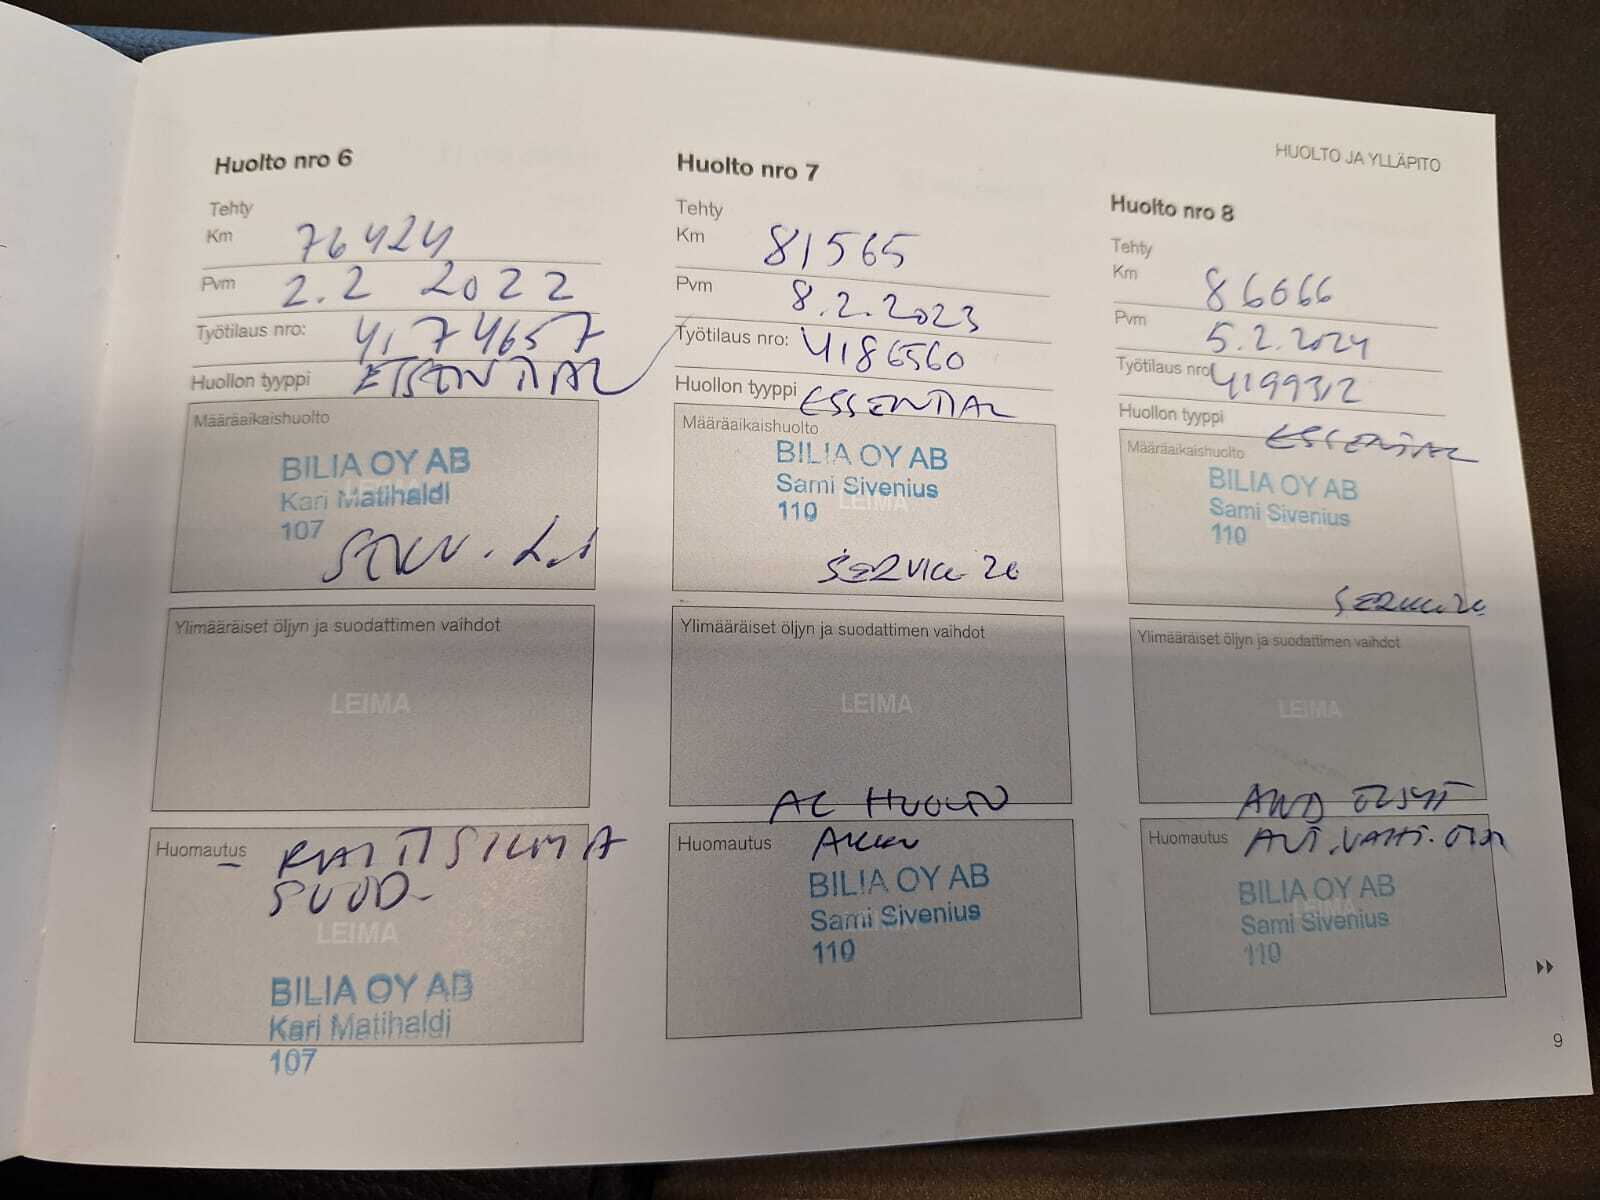 HUOLTO JA YLLÄPITO
Huolto nro 6
Tehty
Km 76424
Pvm 2.2 2022
Työtilaus nro: 4174657
Huollon tyyppi ESSENTIAL
Määräaikaishuolto
BILIA OY AB
Kari Matihaldi
LEIMA
107
Ylimääräiset öljyn ja suodattimen vaihdot
LEIMA
Huomautus - RAITISILMA
SUOD-
LEIMA
BILIA OY AB
Kari Matihaldi
107
Huolto nro 7
Tehty
Km 81565
Pvm 8.2.2023
Työtilaus nro: 4186560
Huollon tyyppi ESSENTIAL
Määräaikaishuolto
BILIA OY AB
Sami Sivenius
LEIMA
110
SERVICE 20
Ylimääräiset öljyn ja suodattimen vaihdot
LEIMA
AC HUOLTO
Huomautus AKKU
BILIA OY AB
Sami Sivenius
110
Huolto nro 8
Tehty
Km 86066
Pvm 5.2.2024
Työtilaus nro 4199312
Huollon tyyppi ESSENTIAL
Määräaikaishuolto
BILIA OY AB
Sami Sivenius
110
Ylimääräiset öljyn ja suodattimen vaihdot
LEIMA
AWD ÖLJYT
Huomautus AUT.VAIHT.
BILIA OY AB
Sami Sivenius
110
9